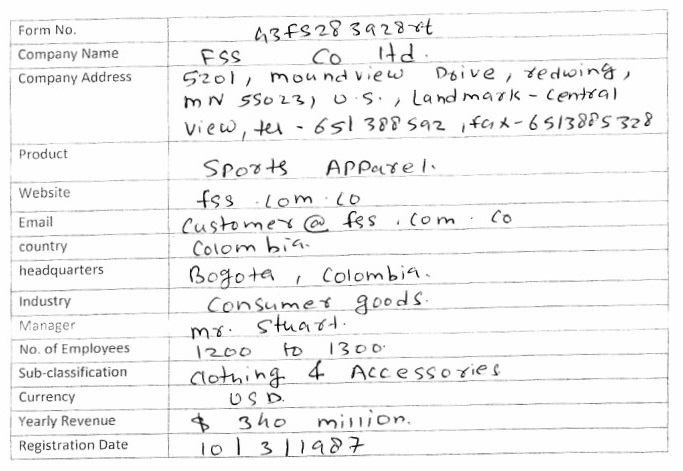 Form No. G3FS283928rt
Company Name FSS Co ltd.
Company Address 5201, moundview Drive, redwing,
mN 55023, U.S., Landmark - Central
View, tel - 651 388 592, fax - 6513885328
Product Sports Apparel.
Website fss.com.co
Email Customer@fss.com.co
country Colombia.
headquarters Bogota, Colombia.
Industry Consumer goods.
Manager mr. Stuart.
No. of Employees 1200 to 1300.
Sub-classification Clothing & Accessories
Currency USD.
Yearly Revenue $ 340 million.
Registration Date 10/3/1987